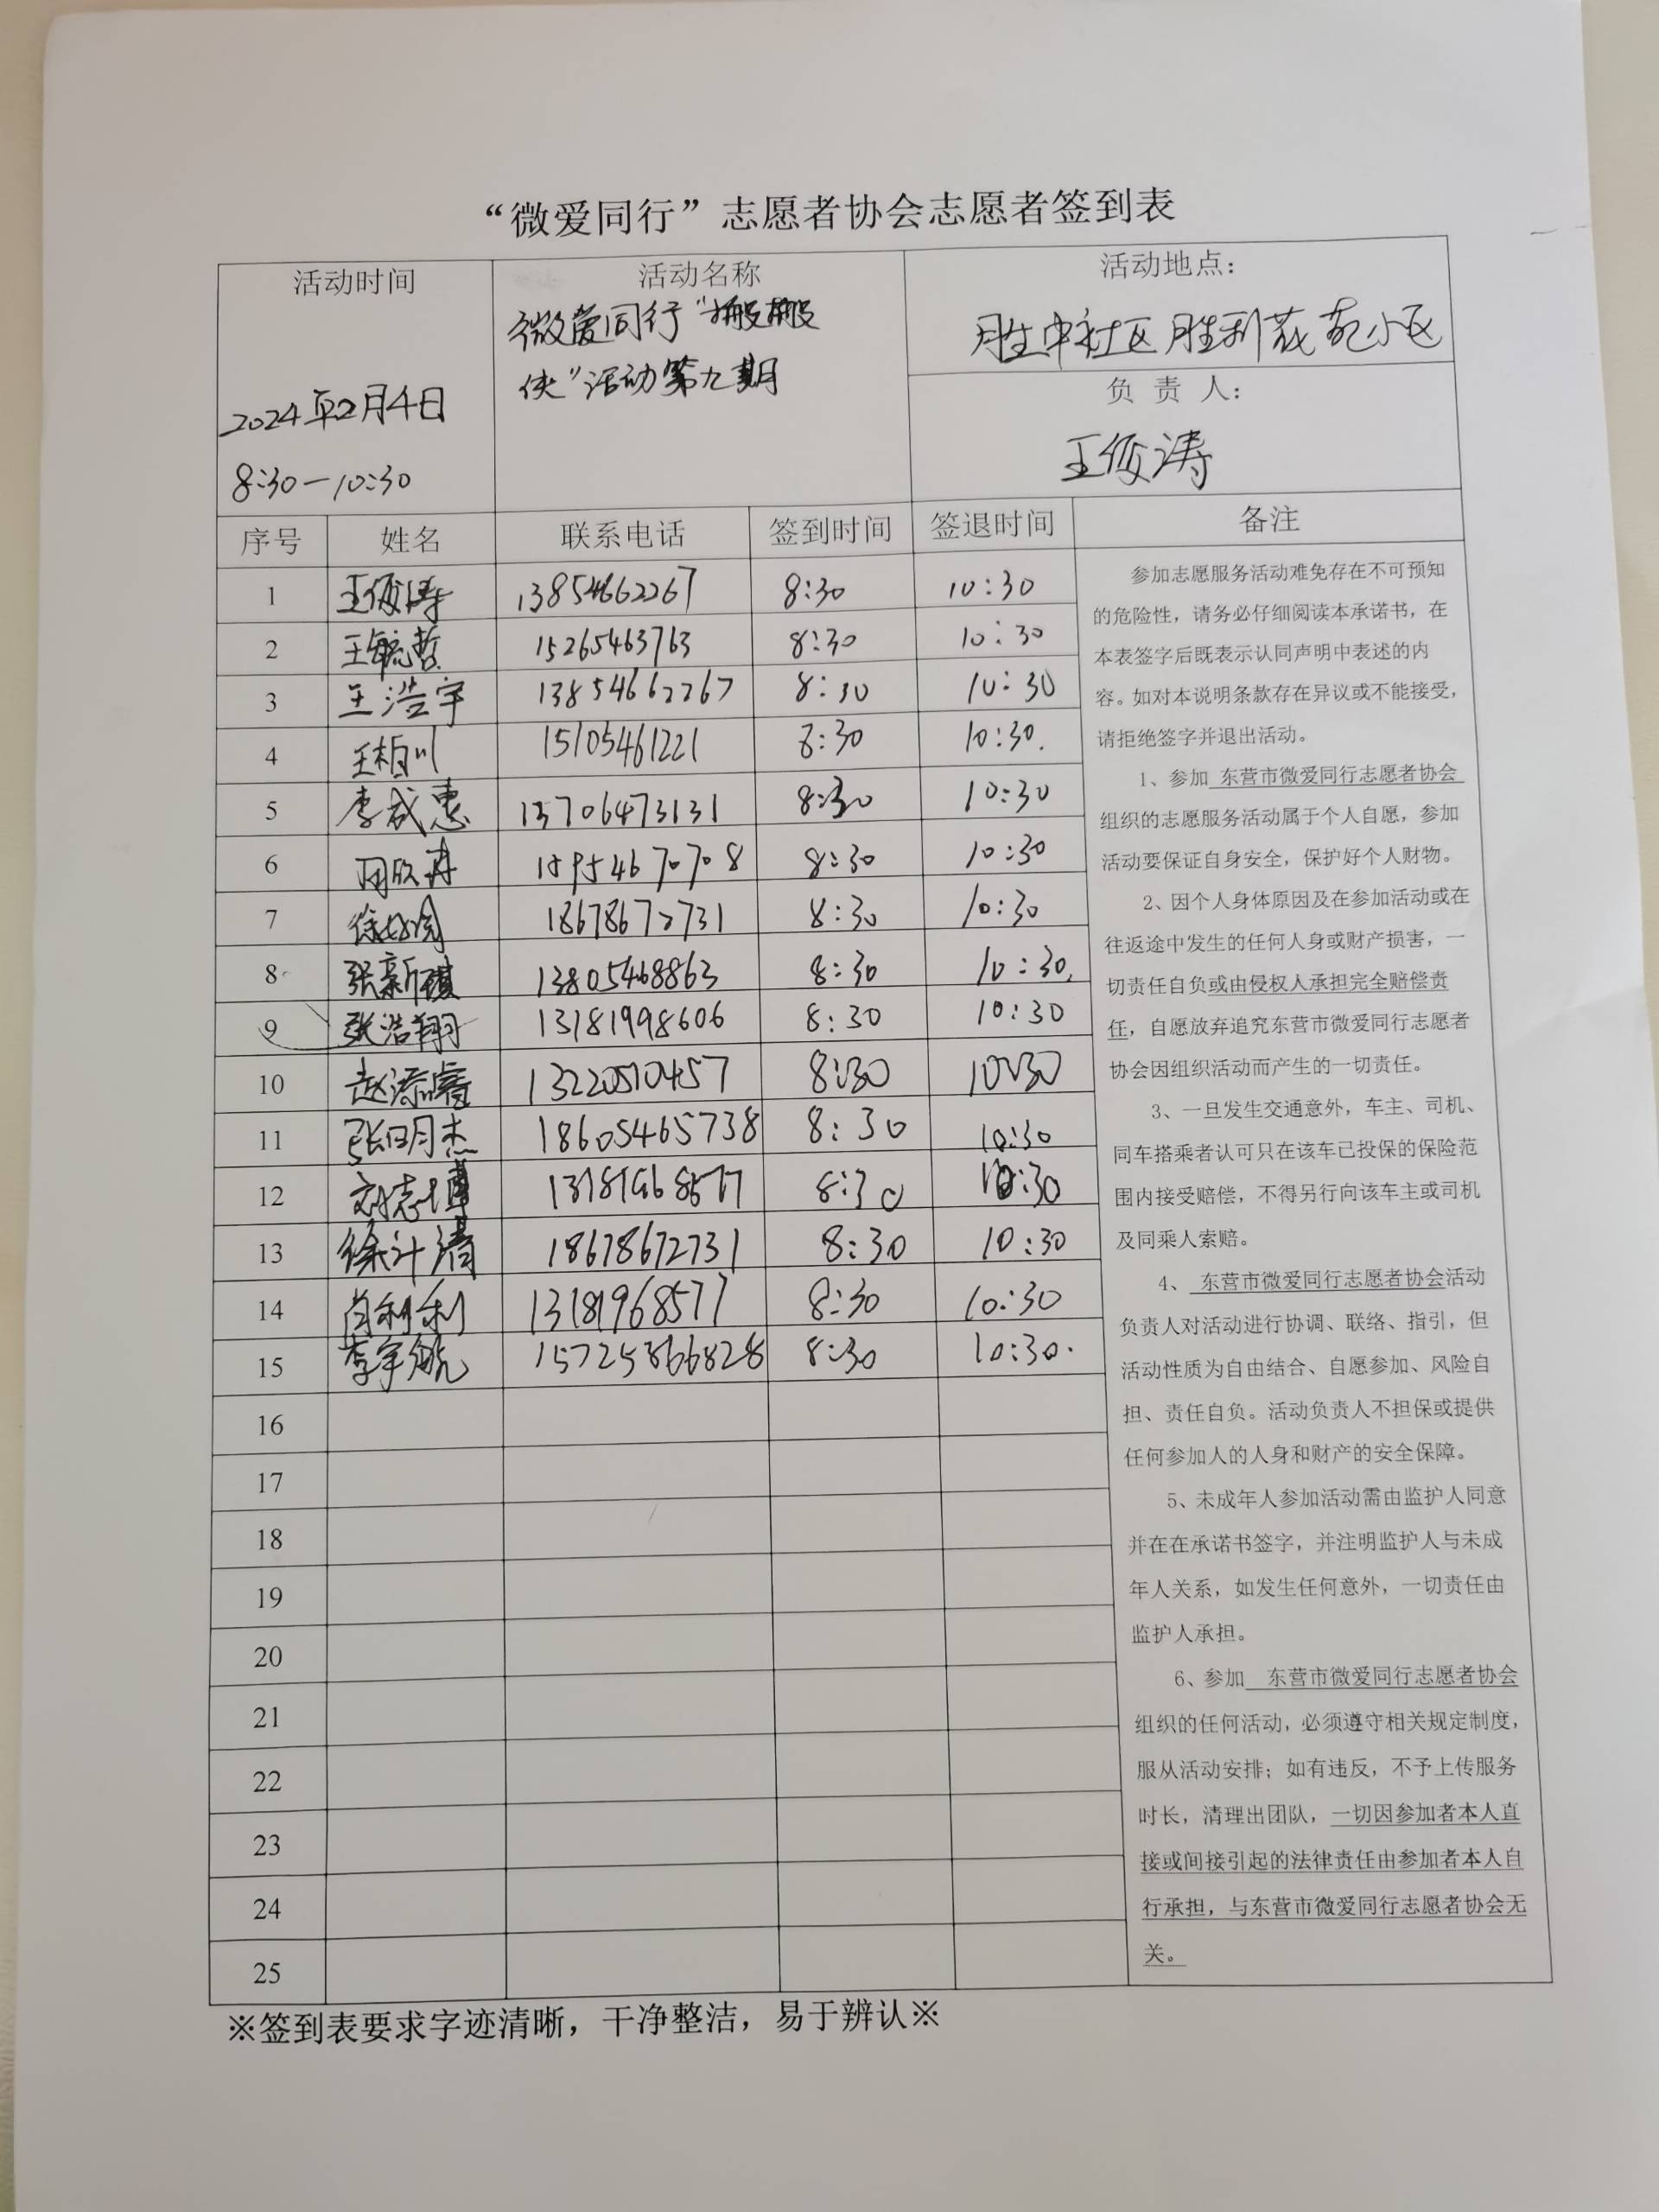 “微爱同行”志愿者协会志愿者签到表
活动时间
2024年2月4日
8:30—10:30
活动名称
微爱同行“搬搬
侠”活动第九期
活动地点：
胜中社区胜利花苑小区
负 责 人：
王俊涛
序号 姓名 联系电话 签到时间 签退时间 备注
1 王俊涛 13854662267 8:30 10:30
2 王毓哲 15265463763 8:30 10:30
3 王浩宇 13854662267 8:30 10:30
4 王柏川 15105461221 8:30 10:30.
5 李成惠 13706473131 8:30 10:30
6 8:30 10:30
7 18678672731 8:30 10:30
8 张新祺 13805468863 8:30 10:30.
9 张浩翔 13181998606 8:30 10:30
10 赵添睿 13220510457 8:30 10:30
11 张明杰 18605465738 8:30 10:30
12 刘志博 13181968577 8:30 10:30
13 徐计清 18678672731 8:30 10:30
14 肖利利 13181968577 8:30 10:30
15 李宇航 157258666828 8:30 10:30.
16
17
18
19
20
21
22
23
24
25
参加志愿服务活动难免存在不可预知
的危险性，请务必仔细阅读本承诺书，在
本表签字后既表示认同声明中表述的内
容。如对本说明条款存在异议或不能接受，
请拒绝签字并退出活动。
1、参加 东营市微爱同行志愿者协会
组织的志愿服务活动属于个人自愿，参加
活动要保证自身安全，保护好个人财物。
2、因个人身体原因及在参加活动或在
往返途中发生的任何人身或财产损害，一
切责任自负或由侵权人承担完全赔偿责
任，自愿放弃追究东营市微爱同行志愿者
协会因组织活动而产生的一切责任。
3、一旦发生交通意外，车主、司机、
同车搭乘者认可只在该车已投保的保险范
围内接受赔偿，不得另行向该车主或司机
及同乘人索赔。
4、 东营市微爱同行志愿者协会活动
负责人对活动进行协调、联络、指引，但
活动性质为自由结合、自愿参加、风险自
担、责任自负。活动负责人不担保或提供
任何参加人的人身和财产的安全保障。
5、未成年人参加活动需由监护人同意
并在在承诺书签字，并注明监护人与未成
年人关系，如发生任何意外，一切责任由
监护人承担。
6、参加 东营市微爱同行志愿者协会
组织的任何活动，必须遵守相关规定制度，
服从活动安排；如有违反，不予上传服务
时长，清理出团队，一切因参加者本人直
接或间接引起的法律责任由参加者本人自
行承担，与东营市微爱同行志愿者协会无
关。
※签到表要求字迹清晰，干净整洁，易于辨认※